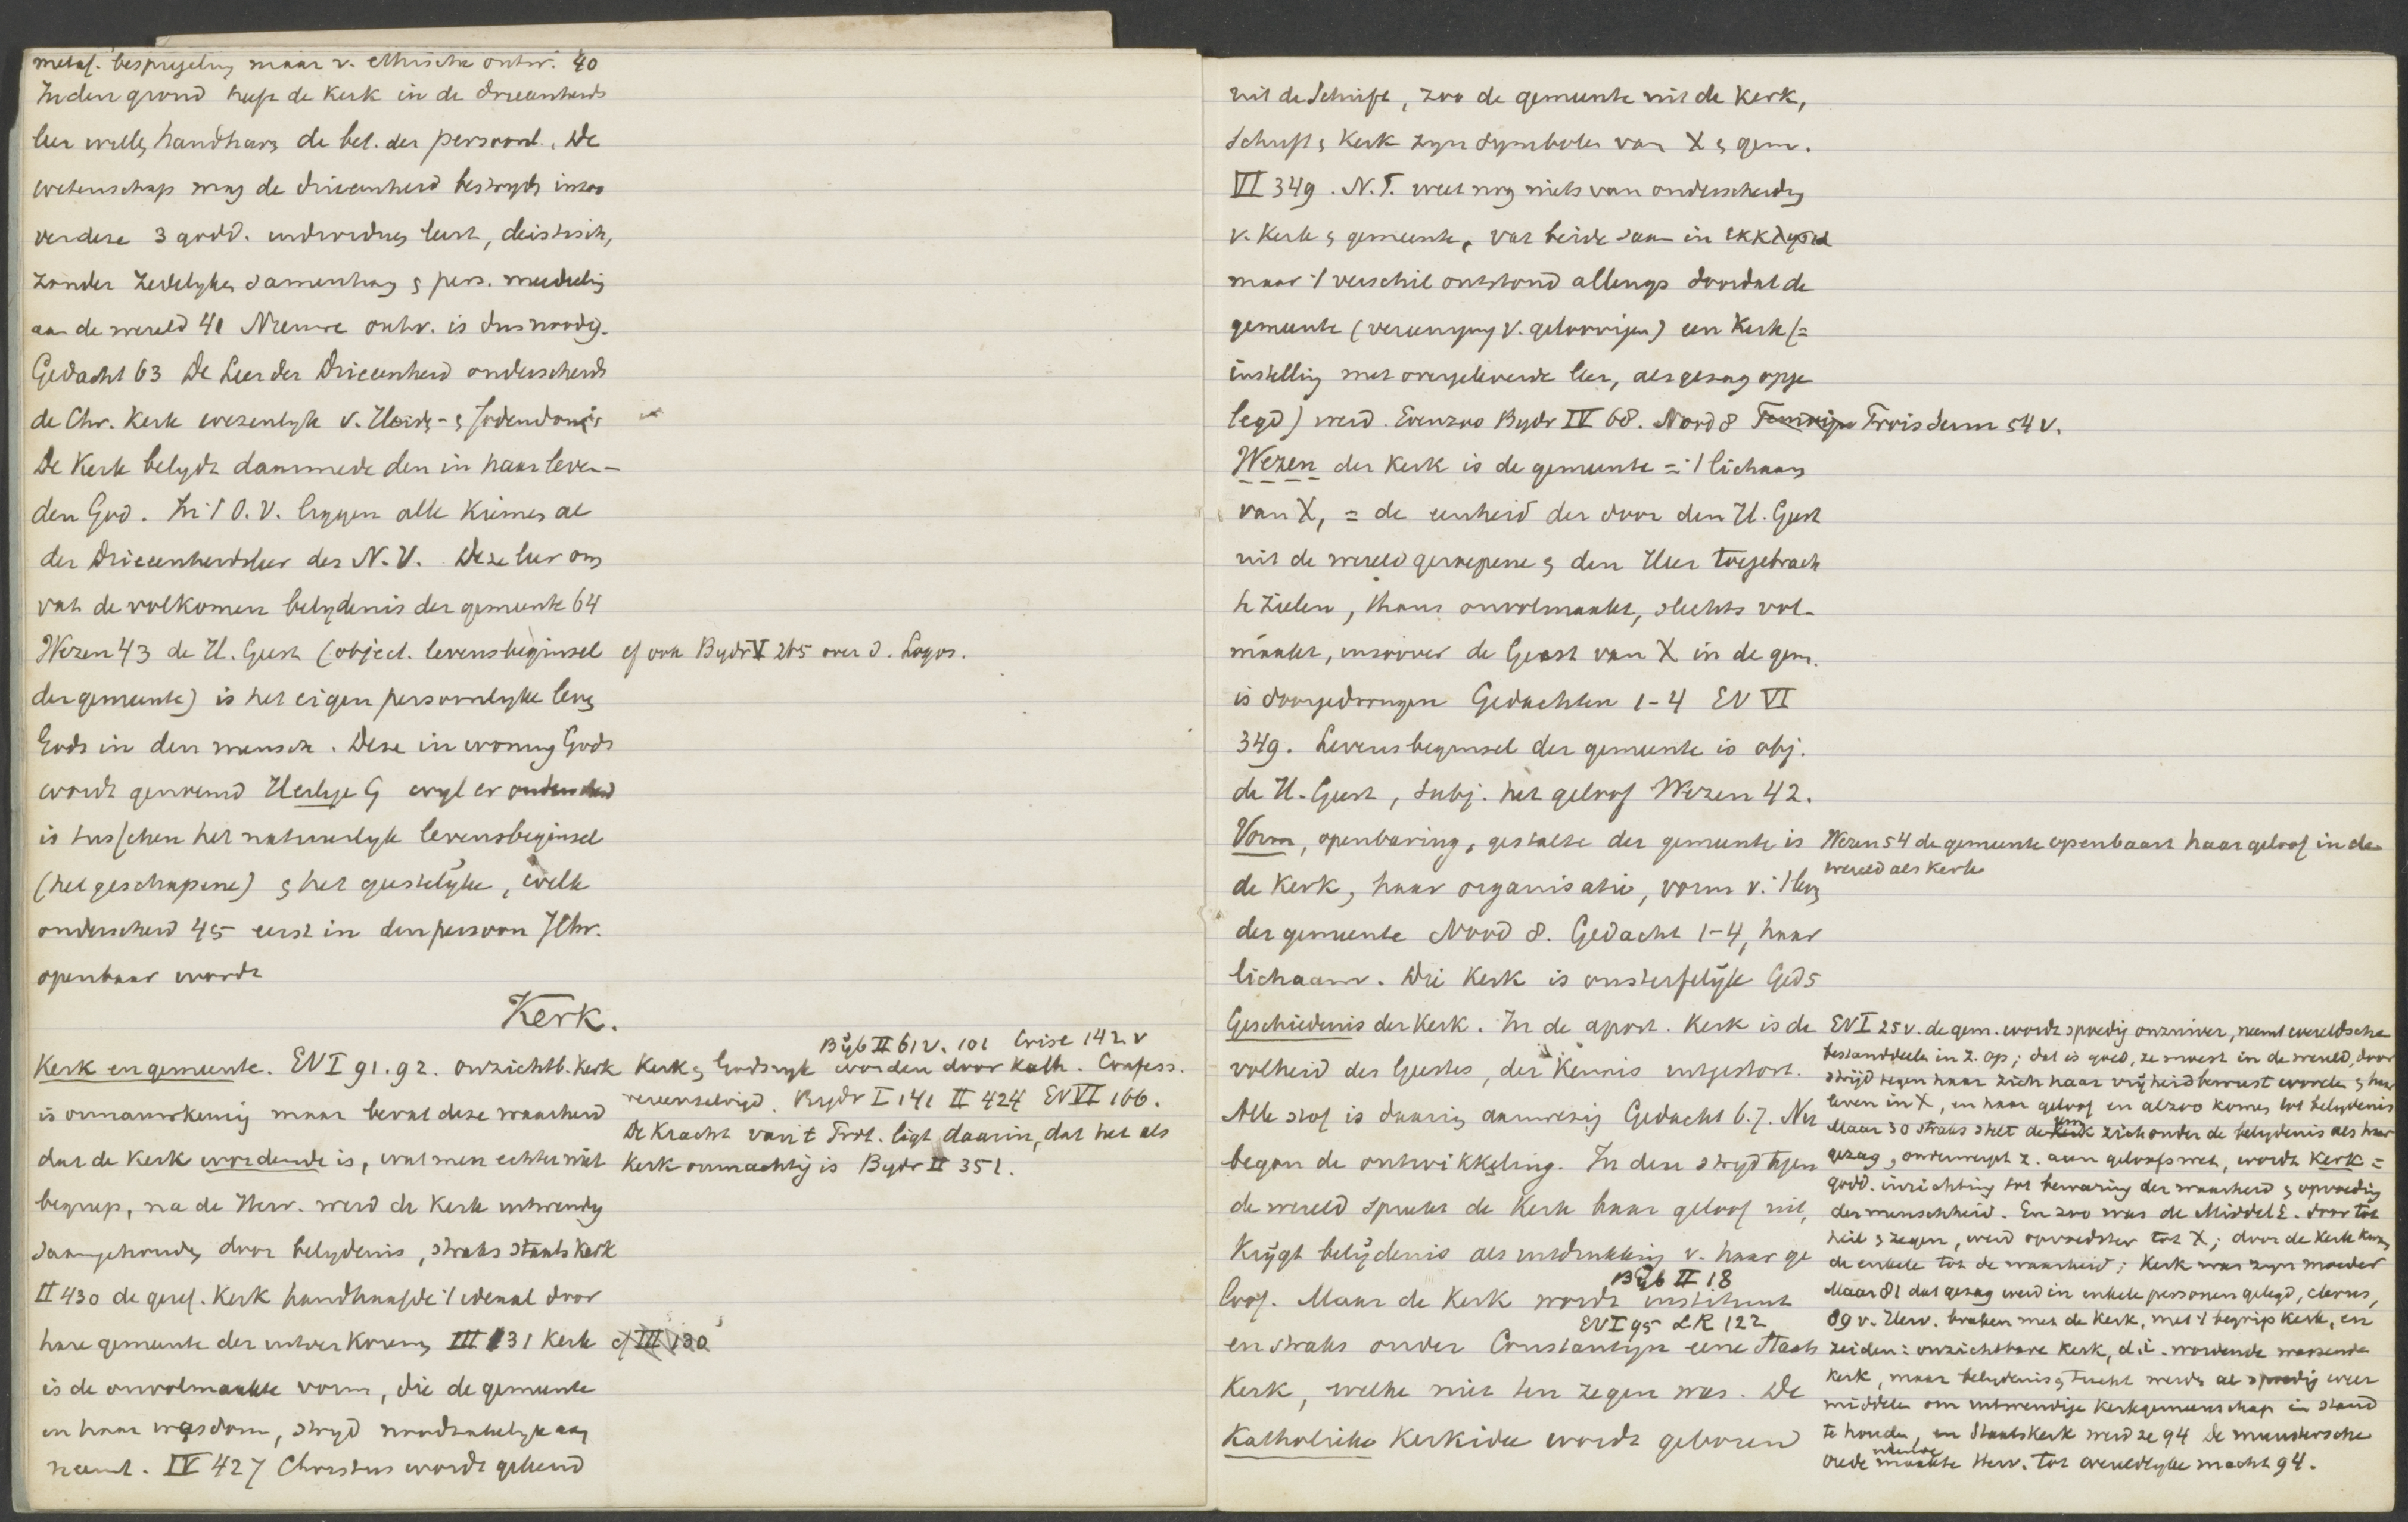 metaf. bespiegeling maar v. ethische ontw. 40
In den grond heeft de Kerk in de drieenheids
leer willen handhaven de bet. der persoonl. De
wetenschap mag de drieenheid bestryden inzoo
verdeze 3 godd. individuen leert, deistisch,
zonder zedelyken samenhang & pers. mededeeling
aan de wereld 41 Nieuwe ontw. is dus noodig.
Gedacht 63 De Leer der Drieeenheid onderscheidt
de Chr. Kerk wezenlyk v. Heid.- & Jodendom
De Kerk belydt daarmede den in haar leven-
den God. In 't O.V. liggen alle Kiemen al
der Drieeenheidsleer des N.V. Deze leer om
vat de volkomen belydenis der gemeente 64
Wezen 43 de H. Geest (object. levensbeginsel cf ook Bydr V 265 over d. Logos.
der gemeente) is het eigen persoonlyke leven
Gods in den mensch. Deze inwoning Gods
wordt genoemd Heilige G wyl er onderscheid
is tusschen het natuurlyk levensbeginsel
(het geschapene) & het geestelyke, welk
onderscheid 45 eerst in den persoon JChr.
openbaar wordt
Kerk.
Kerk en gemeente. EV I 91.92. onzichtb. Kerk
is onnauwkeurig maar bevat deze waarheid
dat de Kerk wordende is, wat men echter niet
begreep, na de Herv. werd de Kerk uitwendig
saamgehouden door belydenis, straks staatskerk
II 430 de geref. Kerk handhaafde 't ideaal door
hare gemeente der uitverkorenen III 131 Kerk cf III 130
is de onvolmaakte vorm, die de gemeente
in haar wasdom, stryd noodzakelyk aan
neemt. IV 427 Christus wordt gekend
Byb II 61v. 101 Crise 142 v
Kerk & Godsryk worden door Kath. Confess.
vereenzelvigd. Bydr I 141 II 424 EV VI 166.
De Kracht van 't Prot. ligt daarin, dat het als
Kerk onmachtig is Bydr II 351.
uit de Schrift, zoo de gemeente uit de Kerk,
Schrift & Kerk zyn symbolen van X & gem.
VI 349. N.T. weet nog niets van onderscheiding
v. Kerk & gemeente, vat beide saam in εκκλησια
maar 't verschil ontstond allengs doordat de
gemeente (vereeniging v. geloovigen) een Kerk (=
instelling met overgeleverde leer, als gezag opge
legd) werd. Evenzoo Bydr IV 68. Nood 8 Trois dern 54 v.
Wezen der Kerk is de gemeente = 't lichaam
van X, = de eenheid der door den H. Geest
uit de wereld geroepene & den Heer toegebrach
te zielen, thans onvolmaakt, slechts vol-
maakt, inzoover de Geest van X in de gem.
is doorgedrongen Gedachten 1-4 EV VI
349. Levensbeginsel der gemeente is obj.
de H. Geest, subj. het geloof Wezen 42.
Vorm, openbaring, gestalte der gemeente is
de Kerk, haar organisatie, vorm v. 't leven
der gemeente Nood 8. Gedacht 1-4, haar
lichaam. Die Kerk is onsterfelyk Ged 5
Wezen 54 de gemeente openbaart haar geloof in de
wereld als Kerk
Geschiedenis der Kerk. In de apost. Kerk is de
volheid des Geestes, der Kennis uitgestort.
Alle stof is daarin aanwezig Gedacht 6.7. Nu
begon de ontwikkeling. In den stryd tegen
de wereld spreekt de Kerk haar geloof uit,
Krygt belydenis als uitdrukking v. haar ge
Byb II 18
loof. Maar de Kerk wordt instituut
EV I 95 LR 122
en straks onder Constantyn eene Staats
Kerk, welke niet ten zegen was. De
Katholieke Kerkidee wordt geboren
EV I 25 v. de gem. wordt spoedig onzuiver, neemt wereldsche
bestanddeelen in z. op; dat is goed, ze moest in de wereld, door
strijd tegen haar zich haar vrijheid bewust worden & haar
leven in X, en haar geloof en alzoo komen tot belydenis
Maar 30 straks stelt de gem zich onder de belydenis als haar
gezag, onderwerpt z. aan geloofswet, wordt Kerk =
godd. inrichting tot bewaring der waarheid & opvoeding
der menschheid. En zoo was de Middel E. door tot
heil & zegen, werd opvoedster tot X; door de Kerk kwam
de enkele tot de waarheid; Kerk was zyn moeder
Maar 81 dat gezag werd in enkele personen gelegd, clerus,
89 v. Herv. braken met de Kerk, met 't begrip Kerk, en
zeiden: onzichtbare Kerk, d.i. wordende wassende
Kerk, maar belydenis & tucht werden al spoedig weer
middelen om uitwendige Kerkgemeenschap in stand
te houden, en Staatskerk werd ze 94 De munstersche
vrede maakte Herv. tot wereldlyke macht 94.